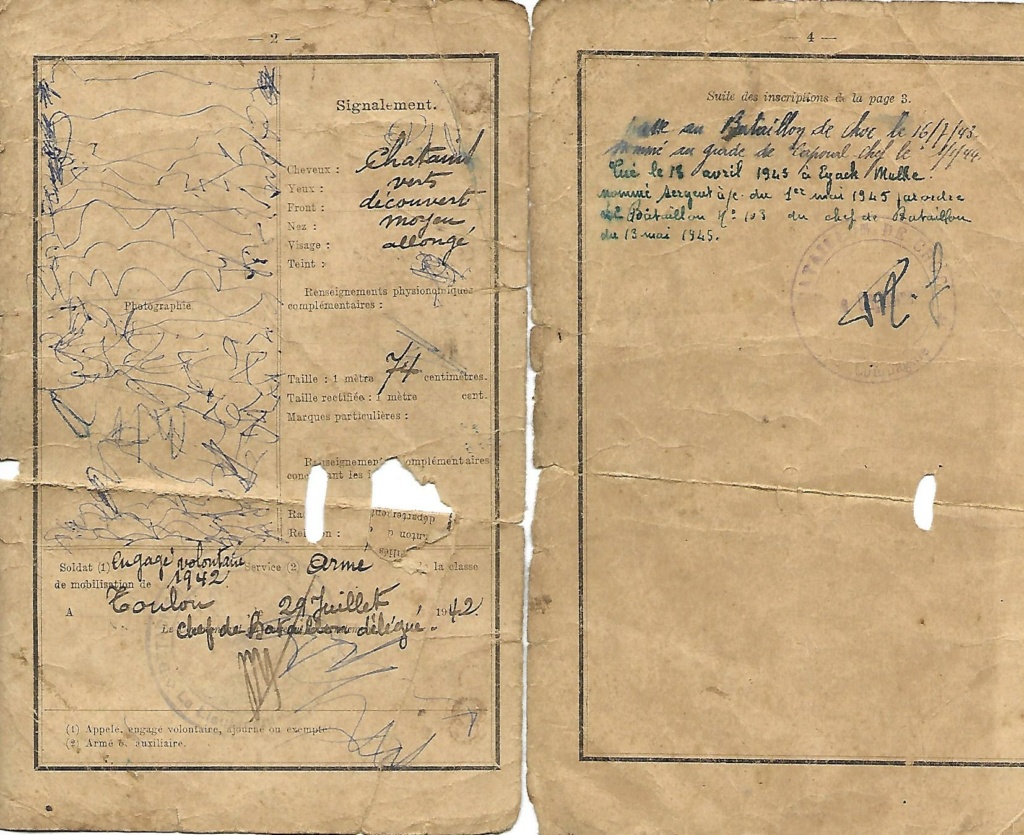 — 2 —
Signalement.
Cheveux : Chatains
Yeux : verts
Front : découvert
Nez : moyen
Visage : allongé
Teint :
Renseignements physionomiques
complémentaires :
Photographie
Taille : 1 mètre 74 centimètres.
Taille rectifiée : 1 mètre cent.
Marques particulières :
Renseignements complémentaires
Soldat (1) Engagé volontaire Service (2) Armé la classe
de mobilisation de 1942
A Toulon 29 Juillet 1942
chef de Bataillon délégué.
(1) Appelé, engagé volontaire, ajourné ou exempté
(2) Armé auxiliaire.
— 4 —
Suite des inscriptions de la page 3.
au Bataillon de Choc le 16/7/43
nommé au grade de Caporal chef le 1/1/44.
Tué le 18 avril 1945 à
nommé Sergent à/c du 1er mai 1945 par ordre
Bataillon No 103 du chef de Bataillon
du 13 mai 1945.